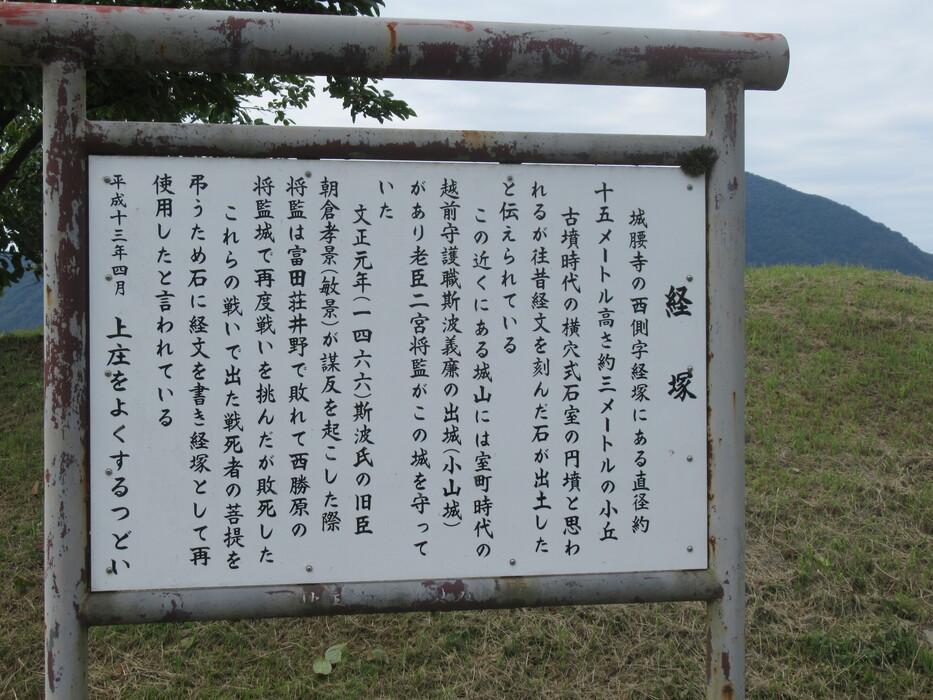 経塚
城腰寺の西側字経塚にある直径約
十五メートル高さ約三メートルの小丘
古墳時代の横穴式石室の円墳と思わ
れるが往昔経文を刻んだ石が出土した
と伝えられている
この近くにある城山には室町時代の
越前守護職斯波義廉の出城(小山城)
があり老臣二宮将監がこの城を守って
いた
文正元年(一四六六)斯波氏の旧臣
朝倉孝景(敏景)が謀反を起こした際
将監は富田荘井野で敗れて西勝原の
将監城で再度戦いを挑んだが敗死した
これらの戦いで出た戦死者の菩提を
弔うため石に経文を書き経塚として再
使用したと言われている
平成十三年四月 上庄をよくするつどい